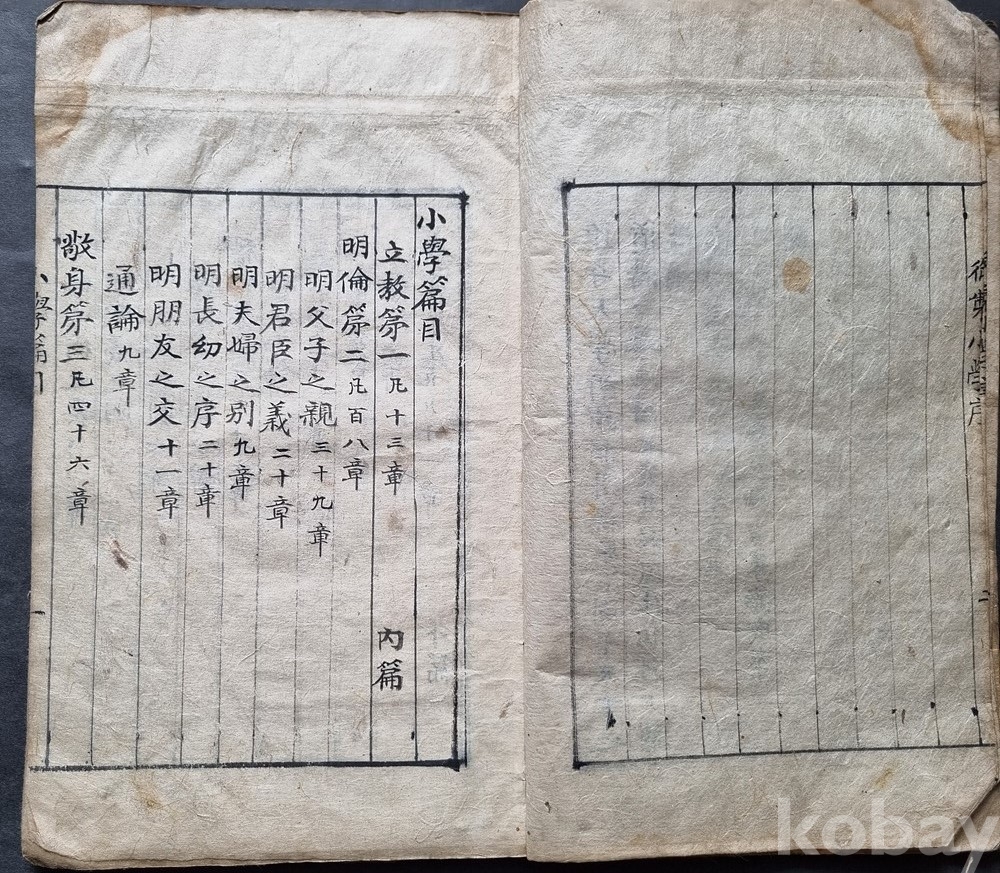 御製小學序
二
小學篇目
立教第一凡十三章 內篇
明倫第二凡百八章
明父子之親三十九章
明君臣之義二十章
明夫婦之別九章
明長幼之序二十章
明朋友之交十一章
通論九章
敬身第三凡四十六章
小學篇目
一
kobay